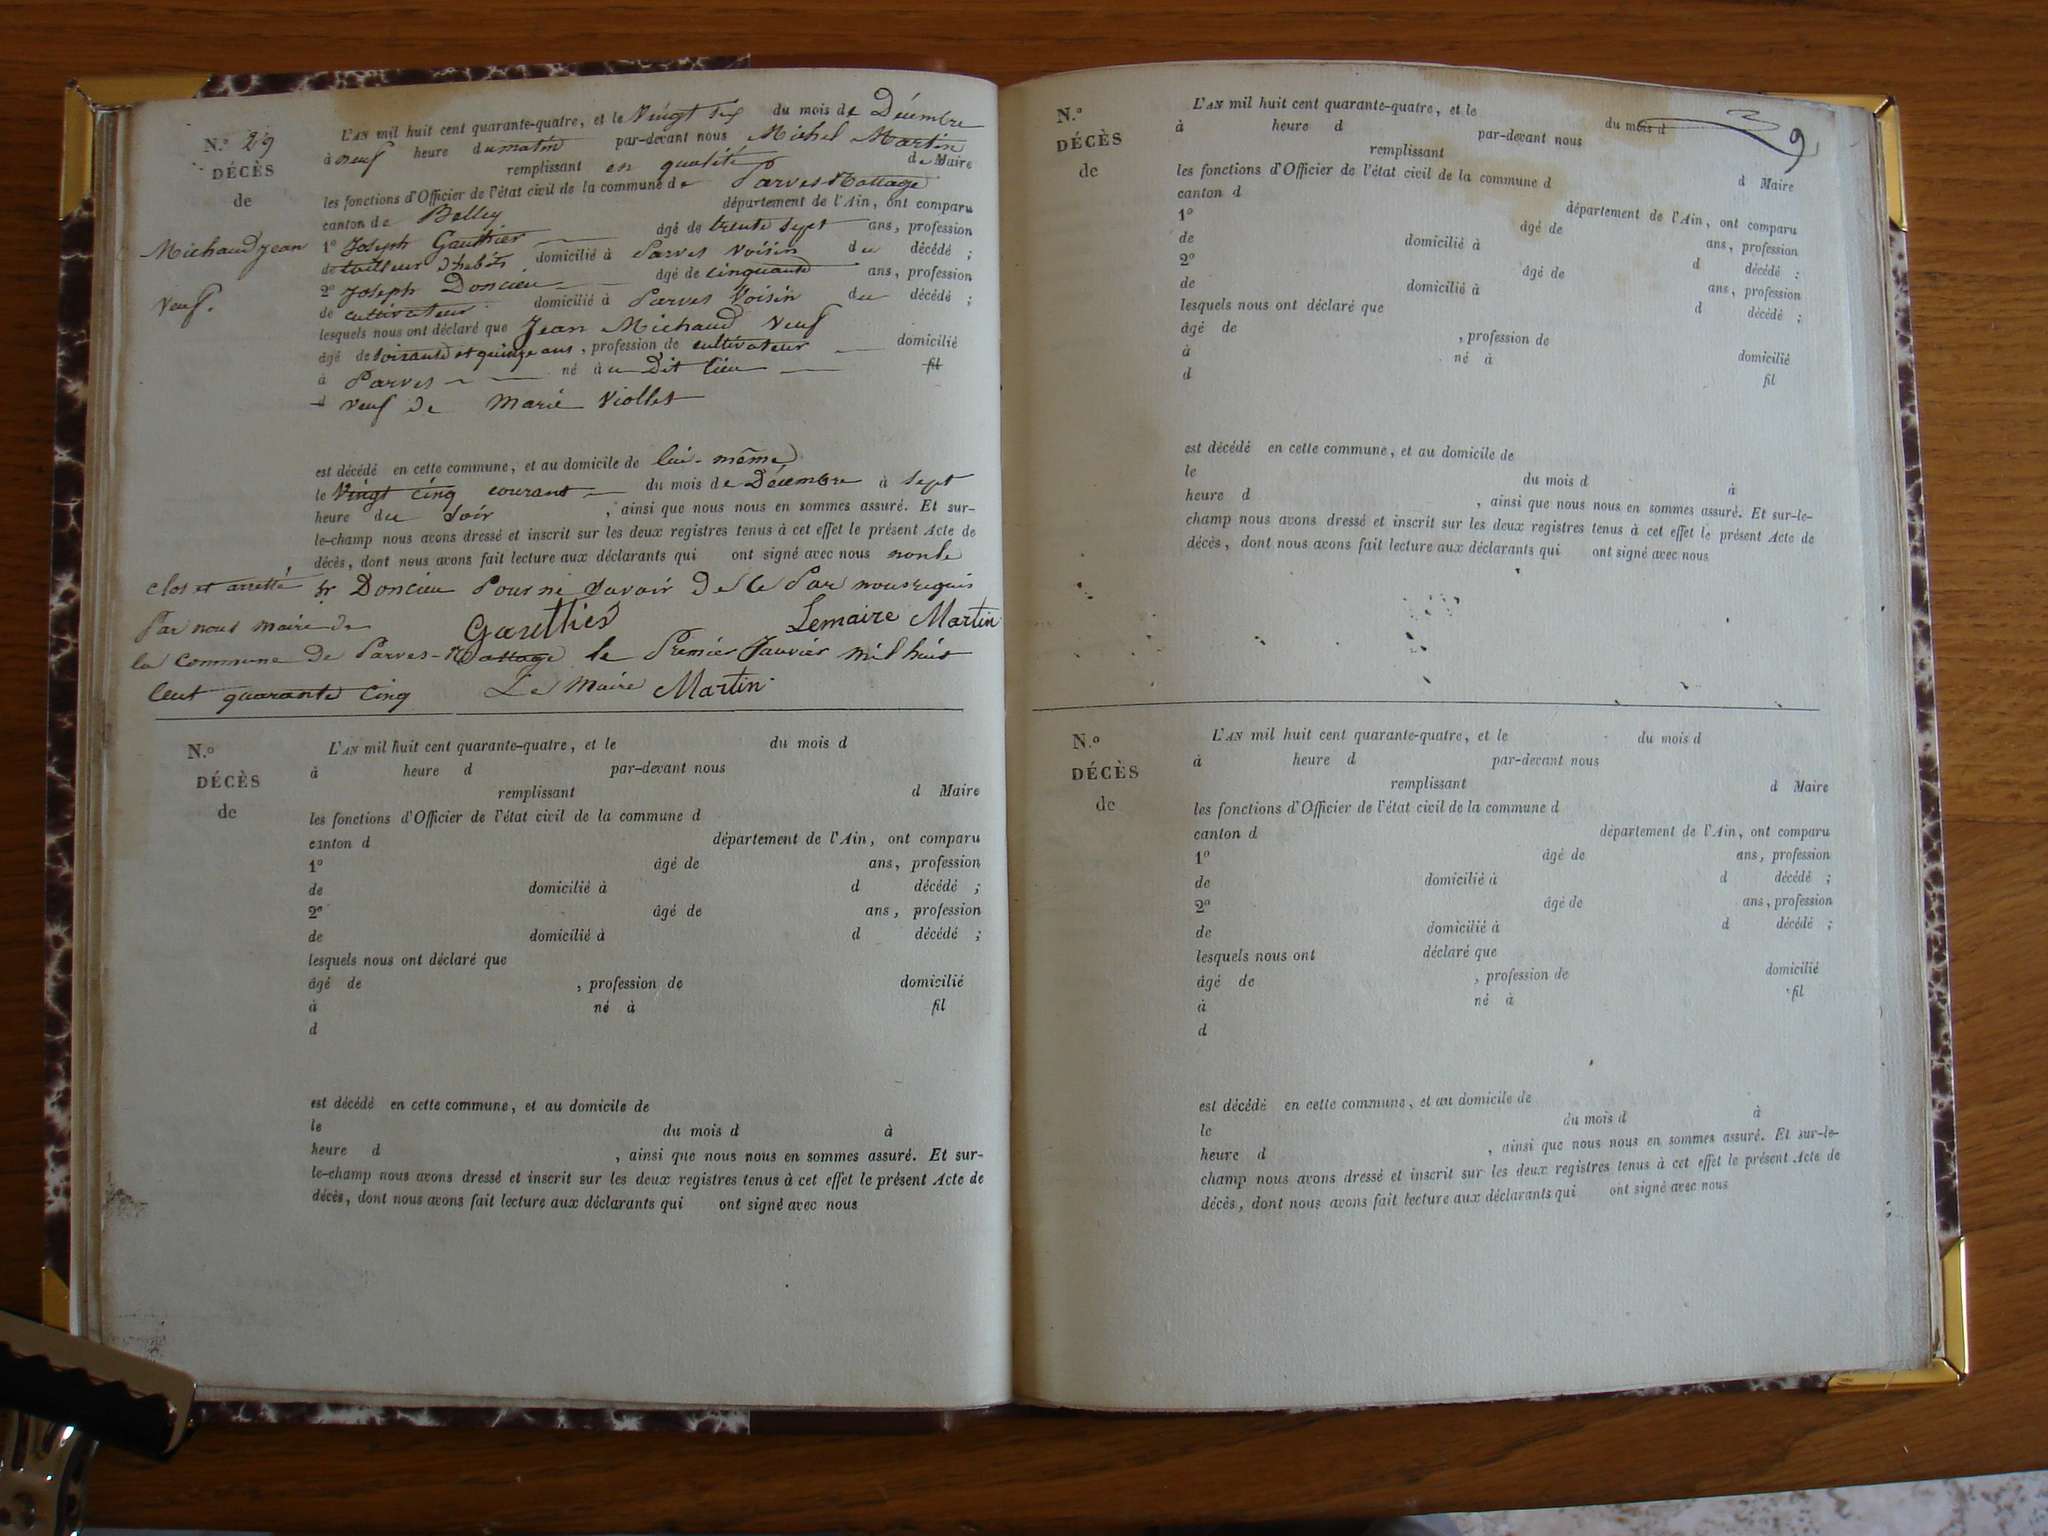 N.o 29
DÉCÈS
de
Michaud Jean
Veuf.
L'AN mil huit cent quarante-quatre, et le Vingt six du mois de Décembre
à neuf heure du matin par-devant nous Michel Martin
remplissant en qualité de Maire
les fonctions d'Officier de l'état civil de la commune de Parves-Nattage
canton de Belley département de l'Ain, ont comparu
1o Joseph Gauthier âgé de trente sept ans, profession
de tailleur d'habits domicilié à Parves Voisin du décédé ;
2o Joseph Doncieu âgé de cinquante ans, profession
de cultivateur domicilié à Parves Voisin du décédé ;
lesquels nous ont déclaré que Jean Michaud Veuf
âgé de soixante et quinze ans, profession de cultivateur domicilié
à Parves né à u Dit lieu fil
d Veuf de Marie Viollet
est décédé en cette commune, et au domicile de lui-même
le Vingt cinq courant du mois de Décembre à Sept
heure du Soir , ainsi que nous nous en sommes assuré. Et sur-
le-champ nous avons dressé et inscrit sur les deux registres tenus à cet effet le présent Acte de
décès, dont nous avons fait lecture aux déclarants qui ont signé avec nous non le
Doncieu Pour ne Savoir De Ce Par nous requis
Gauthier Lemaire Martin
clos et arretté
Par nous maire de
la Commune de Parves-Nattage le Premier Janvier mil huit
Cent quarante Cinq Le Maire Martin
N.o
DÉCÈS
de
L'AN mil huit cent quarante-quatre, et le du mois d
à heure d par-devant nous
remplissant d Maire
les fonctions d'Officier de l'état civil de la commune d
canton d département de l'Ain, ont comparu
1o âgé de ans, profession
de domicilié à d décédé ;
2o âgé de ans, profession
de domicilié à d décédé ;
lesquels nous ont déclaré que
âgé de , profession de domicilié
à né à fil
d
est décédé en cette commune, et au domicile de
le du mois d à
heure d , ainsi que nous nous en sommes assuré. Et sur-
le-champ nous avons dressé et inscrit sur les deux registres tenus à cet effet le présent Acte de
décès, dont nous avons fait lecture aux déclarants qui ont signé avec nous
9
N.o
DÉCÈS
de
L'AN mil huit cent quarante-quatre, et le du mois d
à heure d par-devant nous
remplissant d Maire
les fonctions d'Officier de l'état civil de la commune d
canton d département de l'Ain, ont comparu
1o âgé de ans, profession
de domicilié à d décédé ;
2o âgé de ans, profession
de domicilié à d décédé ;
lesquels nous ont déclaré que
âgé de , profession de domicilié
à né à fil
d
est décédé en cette commune, et au domicile de
le du mois d à
heure d , ainsi que nous nous en sommes assuré. Et sur-le-
champ nous avons dressé et inscrit sur les deux registres tenus à cet effet le présent Acte de
décès, dont nous avons fait lecture aux déclarants qui ont signé avec nous
N.o
DÉCÈS
de
L'AN mil huit cent quarante-quatre, et le du mois d
à heure d par-devant nous
remplissant d Maire
les fonctions d'Officier de l'état civil de la commune d
canton d département de l'Ain, ont comparu
1o âgé de ans, profession
de domicilié à d décédé ;
2o âgé de ans, profession
de domicilié à d décédé ;
lesquels nous ont déclaré que
âgé de , profession de domicilié
à né à fil
d
est décédé en cette commune, et au domicile de
le du mois d à
heure d , ainsi que nous nous en sommes assuré. Et sur-le-
champ nous avons dressé et inscrit sur les deux registres tenus à cet effet le présent Acte de
décès, dont nous avons fait lecture aux déclarants qui ont signé avec nous